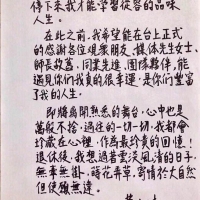 停下來我才能學習從容的品味
人生。
在此之前,我希望能在台上正式
的感謝各位觀衆朋友、媒体先生女士、
師長故舊、同業先進、團隊夥伴,能
遇見你們我真的很幸運,是你們豐富
了我的人生。
即將離開熟悉的舞台,心中也是
萬般不捨,過往的一切一切,我都會
珍藏在心裡,作為最珍貴的回憶!
退休後,我想過著雲淡風清的日子,
無事無掛、蒔花弄草,寄情於大自然
但使願無違。